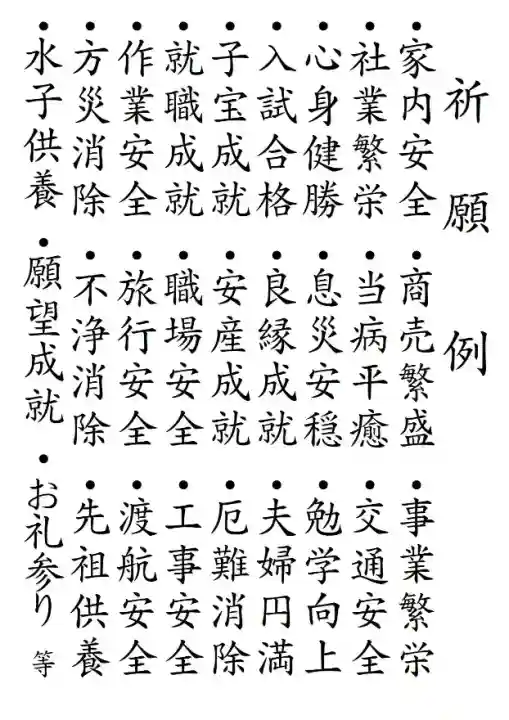 祈願例
・家内安全 ・商売繁盛 ・事業繁栄
・社業繁栄 ・当病平癒 ・交通安全
・心身健勝 ・息災安穏 ・勉学向上
・入試合格 ・良縁成就 ・夫婦円満
・子宝成就 ・安産成就 ・厄難消除
・就職成就 ・職場安全 ・工事安全
・作業安全 ・旅行安全 ・渡航安全
・方災消除 ・不浄消除 ・先祖供養
・水子供養 ・願望成就 ・お礼参り 等